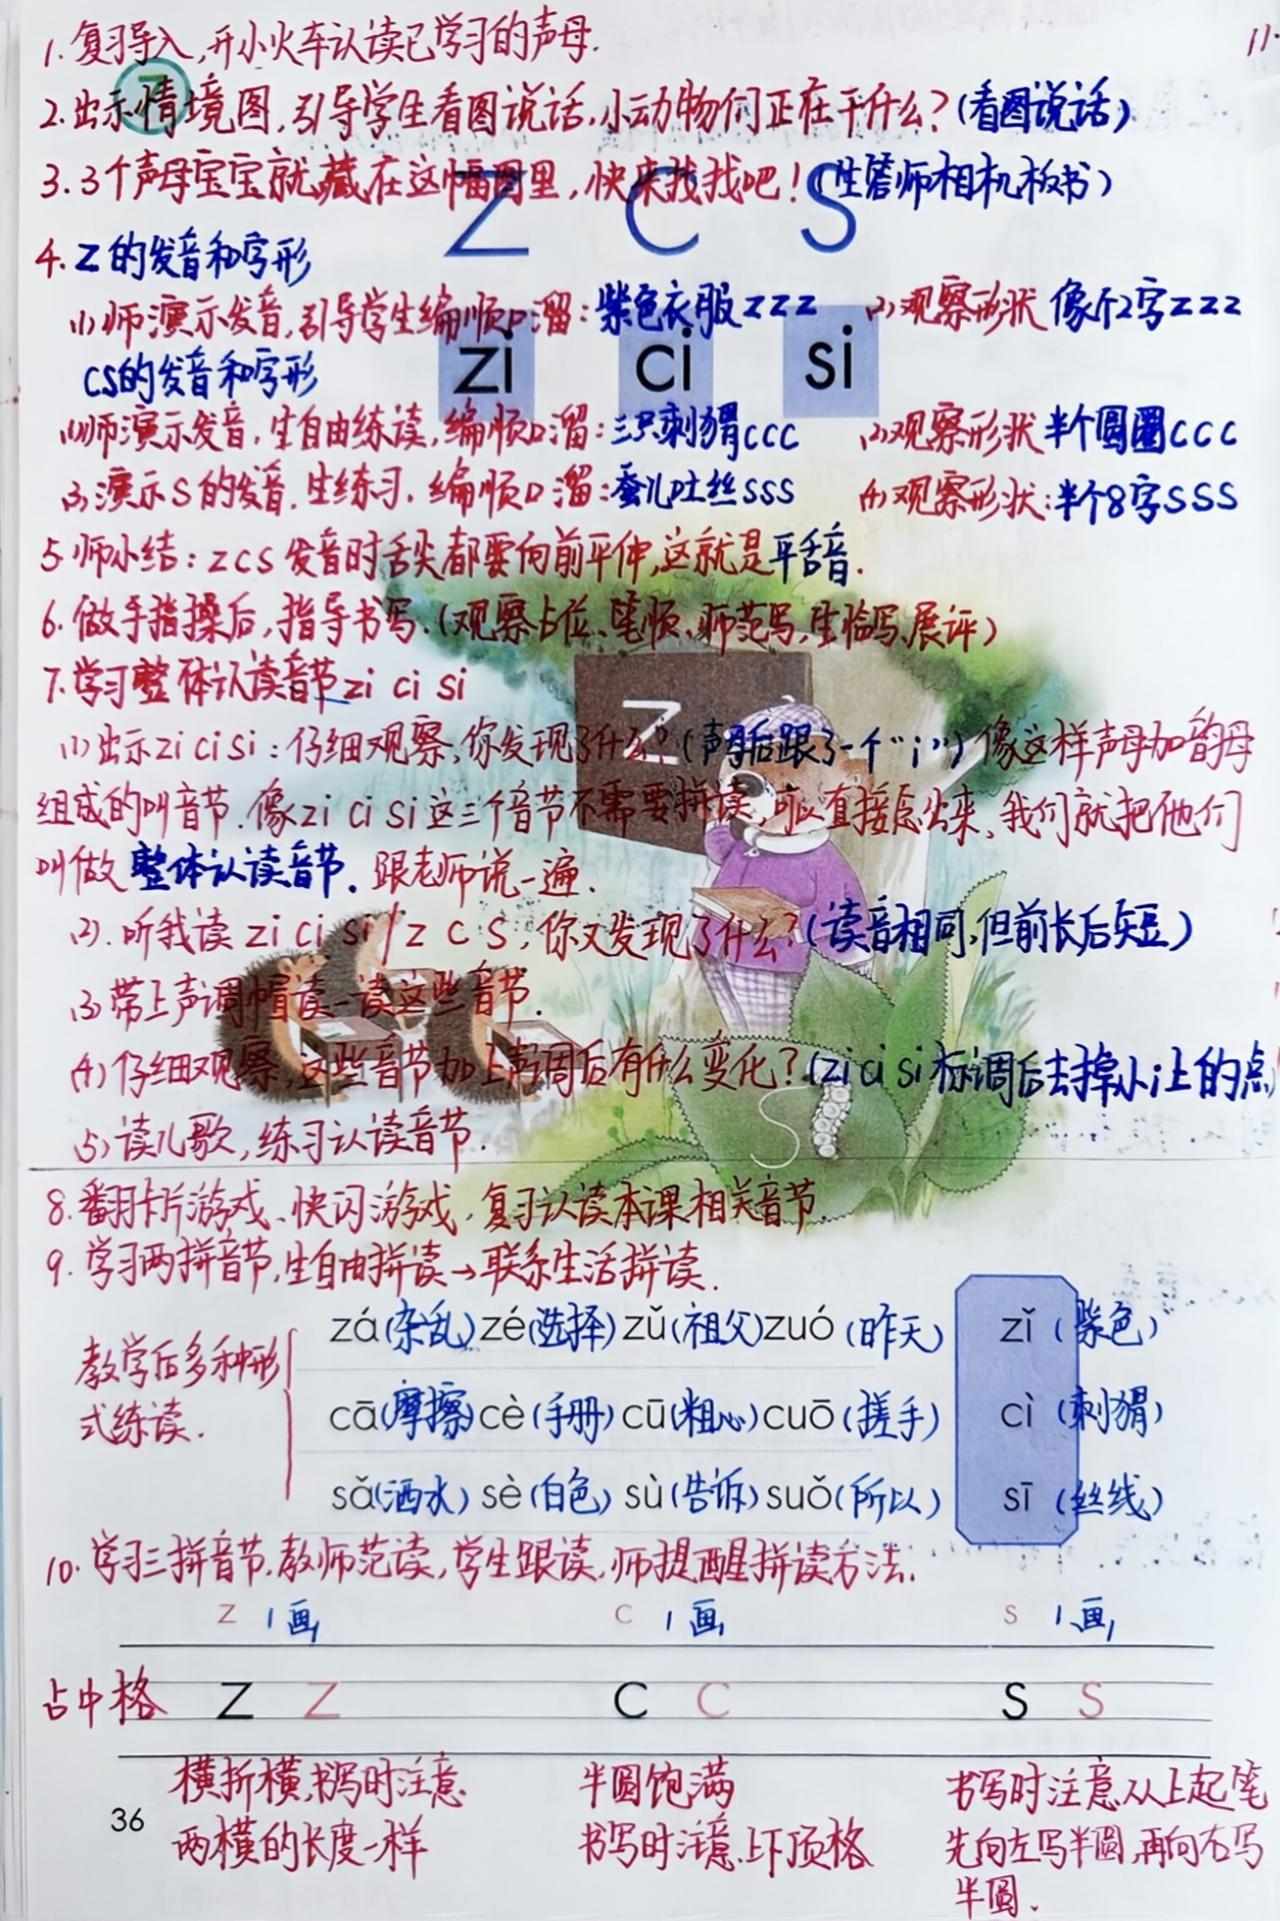 1.复习导入,开小火车认读已学习的声母.
11.
7
2.出示情境图,引导学生看图说话,小动物们正在干什么?(看图说话)
3.3个声母宝宝就藏在这幅图里,快来找找吧!(生答师相机板书)
z c s
4.z的发音和字形
(1)师演示发音,引导学生编顺口溜:紫色衣服zzz (2)观察形状 像个2字zzz
zi ci si
cs的发音和字形
(1)师演示发音,生自由练读,编顺口溜:三只刺猬ccc (2)观察形状半个圆圈ccc
(3)演示s的发音.生练习.编顺口溜:蚕儿吐丝sss (4)观察形状:半个8字sss
5.师小结:zcs发音时舌尖都要向前平伸,这就是平舌音.
6.做手指操后,指导书写.(观察占位、笔顺、师范写,生临写、展评)
7.学习整体认读音节zi ci si
z
(1)出示zi ci si:仔细观察,你发现了什么?(声母后跟了一个“i”)像这样声母加韵母
组成的叫音节.像zi ci si这三个音节不需要拼读,可以直接念出来,我们就把他们
叫做整体认读音节.跟老师说一遍.
(2).听我读 zi ci si/z c s,你又发现了什么?(读音相同,但前长后短)
(3)带上声调帽读一读这些音节.
(4)仔细观察,这些音节加上声调后有什么变化?(zi ci si标调后去掉小i上的点
s
(5)读儿歌,练习认读音节.
8.翻卡片游戏、快闪游戏,复习认读本课相关音节.
9.学习两拼音节,生自由拼读→联系生活拼读.
教学后多种形
式练读.
zá(杂乱) zé(选择) zǔ(祖父) zuó(昨天) zǐ(紫色)
cā(摩擦) cè(手册) cū(粗心) cuō(搓手) cì(刺猬)
sǎ(洒水) sè(白色) sù(告诉) suǒ(所以) sī(丝线)
10.学习三拼音节,教师范读,学生跟读.师提醒拼读方法.
z 1画 c 1画 s 1画
占中格 z z c c s s
横折横,书写时注意
两横的长度一样
半圆饱满
书写时注意上下顶格
书写时注意从上起笔
先向左写半圆,再向右写
半圆.
36